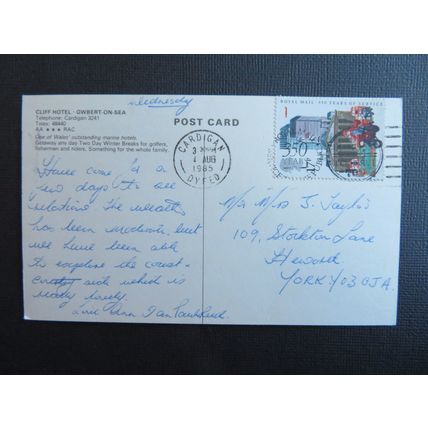 Wednesday
CLIFF HOTEL · GWBERT-ON-SEA
Telephone: Cardigan 3241
Telex: 48440
AA ★★★ RAC
One of Wales' outstanding marine hotels.
Getaway any day Two Day Winter Breaks for golfers,
fishermen and riders. Something for the whole family.
POST CARD
ROYAL MAIL · 350 YEARS OF SERVICE
350
CARDIGAN
1 AUG
1985
DYFED
Have come for a
few days to see
relations. The weather
has been moderate, but
we have been able
to explore the coast-
side which is
really lovely.
Love Ann
Mr Mrs J. Taylor
109, Stockton Lane
Heworth
YORK YO3 0JA.